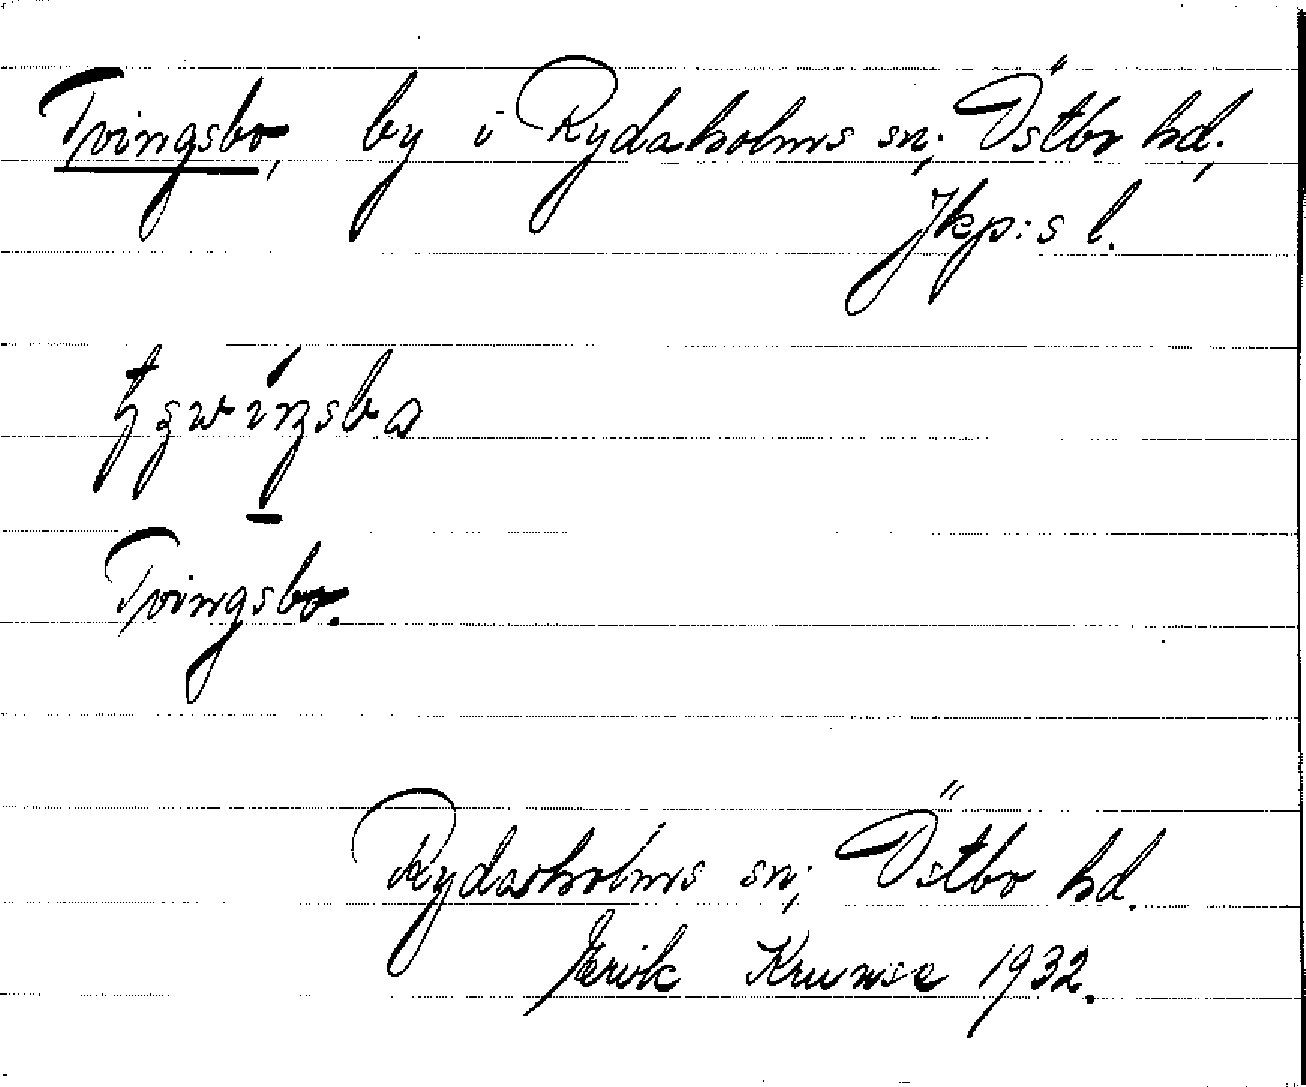 Tvingsbo, by i Rydaholms sn; Östbo hd;
Jkp:s l.
Tvingsbo.
Rydaholms sn; Östbo hd.
Erik Krunse 1932.